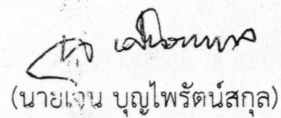 (นายเจน บุญไพรัตน์สกุล)